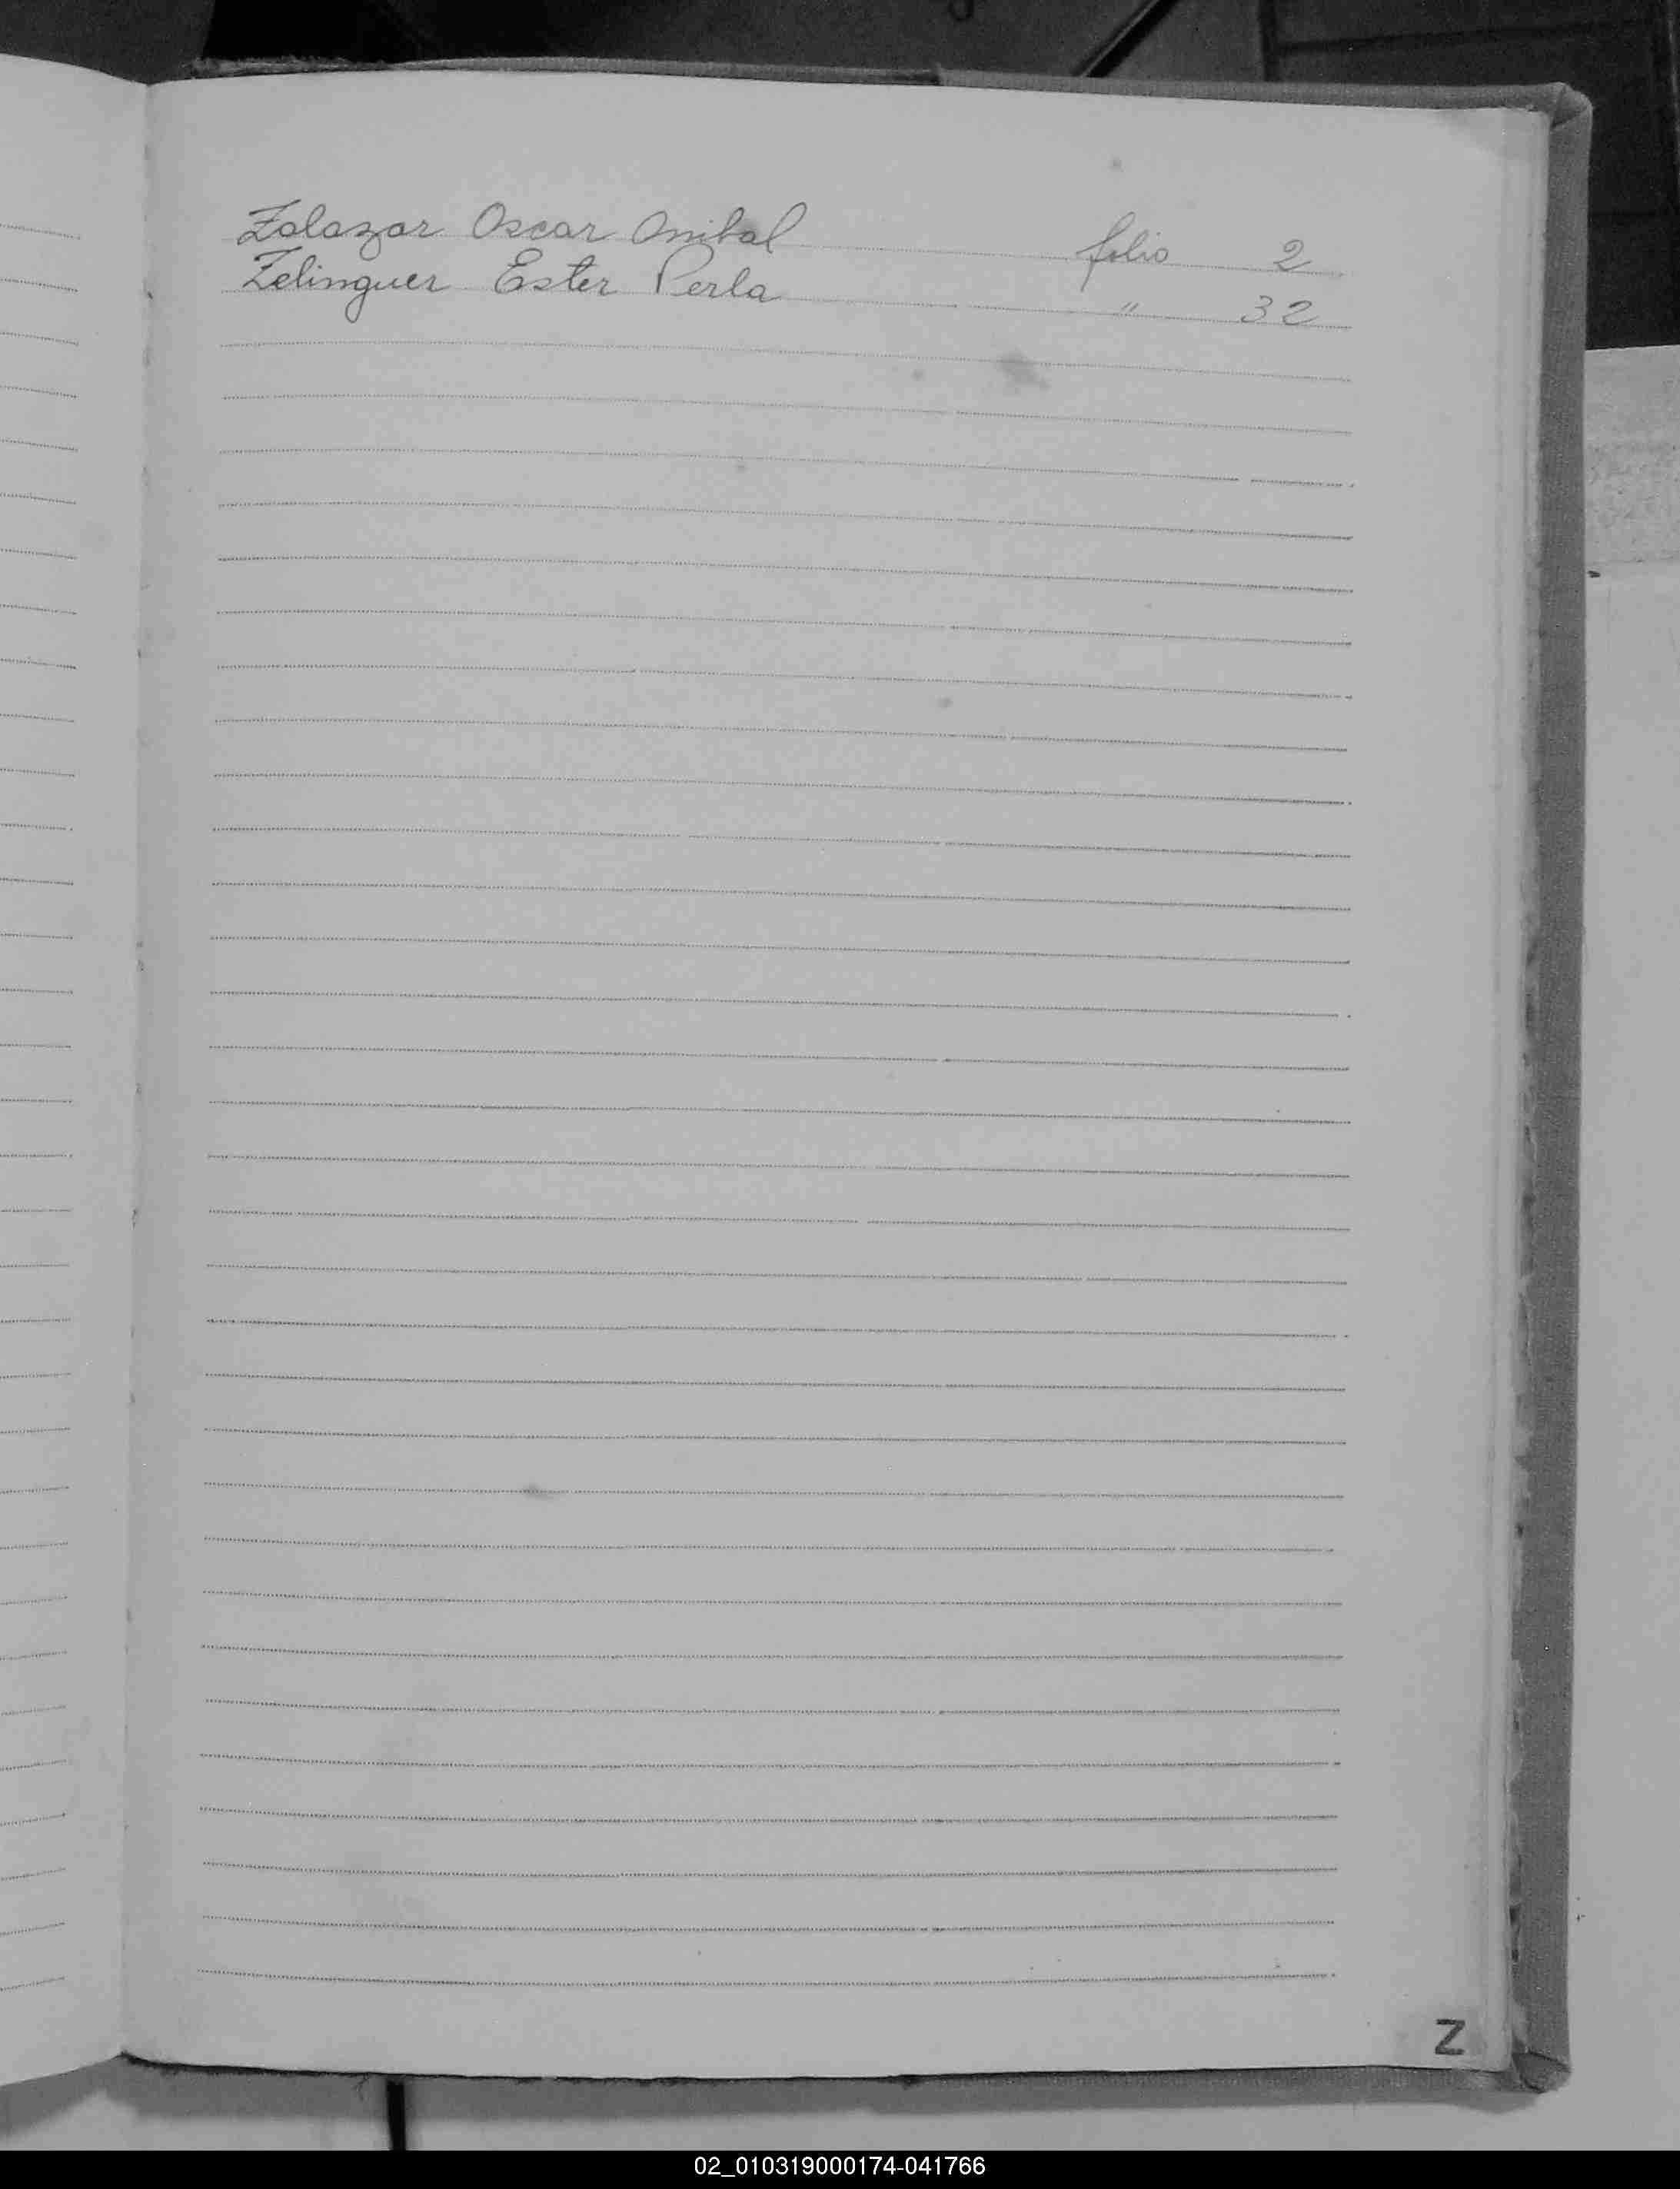 Zalazar Oscar Anibal folio 2
Zelinguer Ester Perla " 32
Z
02_010319000174-041766